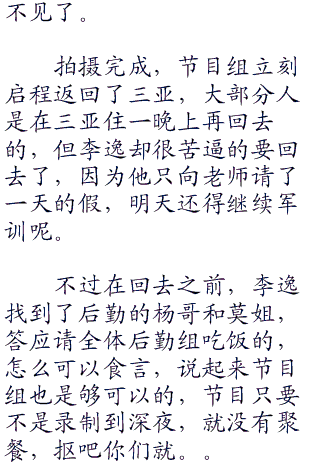 不见了。
拍摄完成，节目组立刻
启程返回了三亚，大部分人
是在三亚住一晚上再回去
的，但李逸却很苦逼的要回
去了，因为他只向老师请了
一天的假，明天还得继续军
训呢。
不过在回去之前，李逸
找到了后勤的杨哥和莫姐，
答应请全体后勤组吃饭的，
怎么可以食言，说起来节目
组也是够可以的，节目只要
不是录制到深夜，就没有聚
餐，抠吧你们就。。